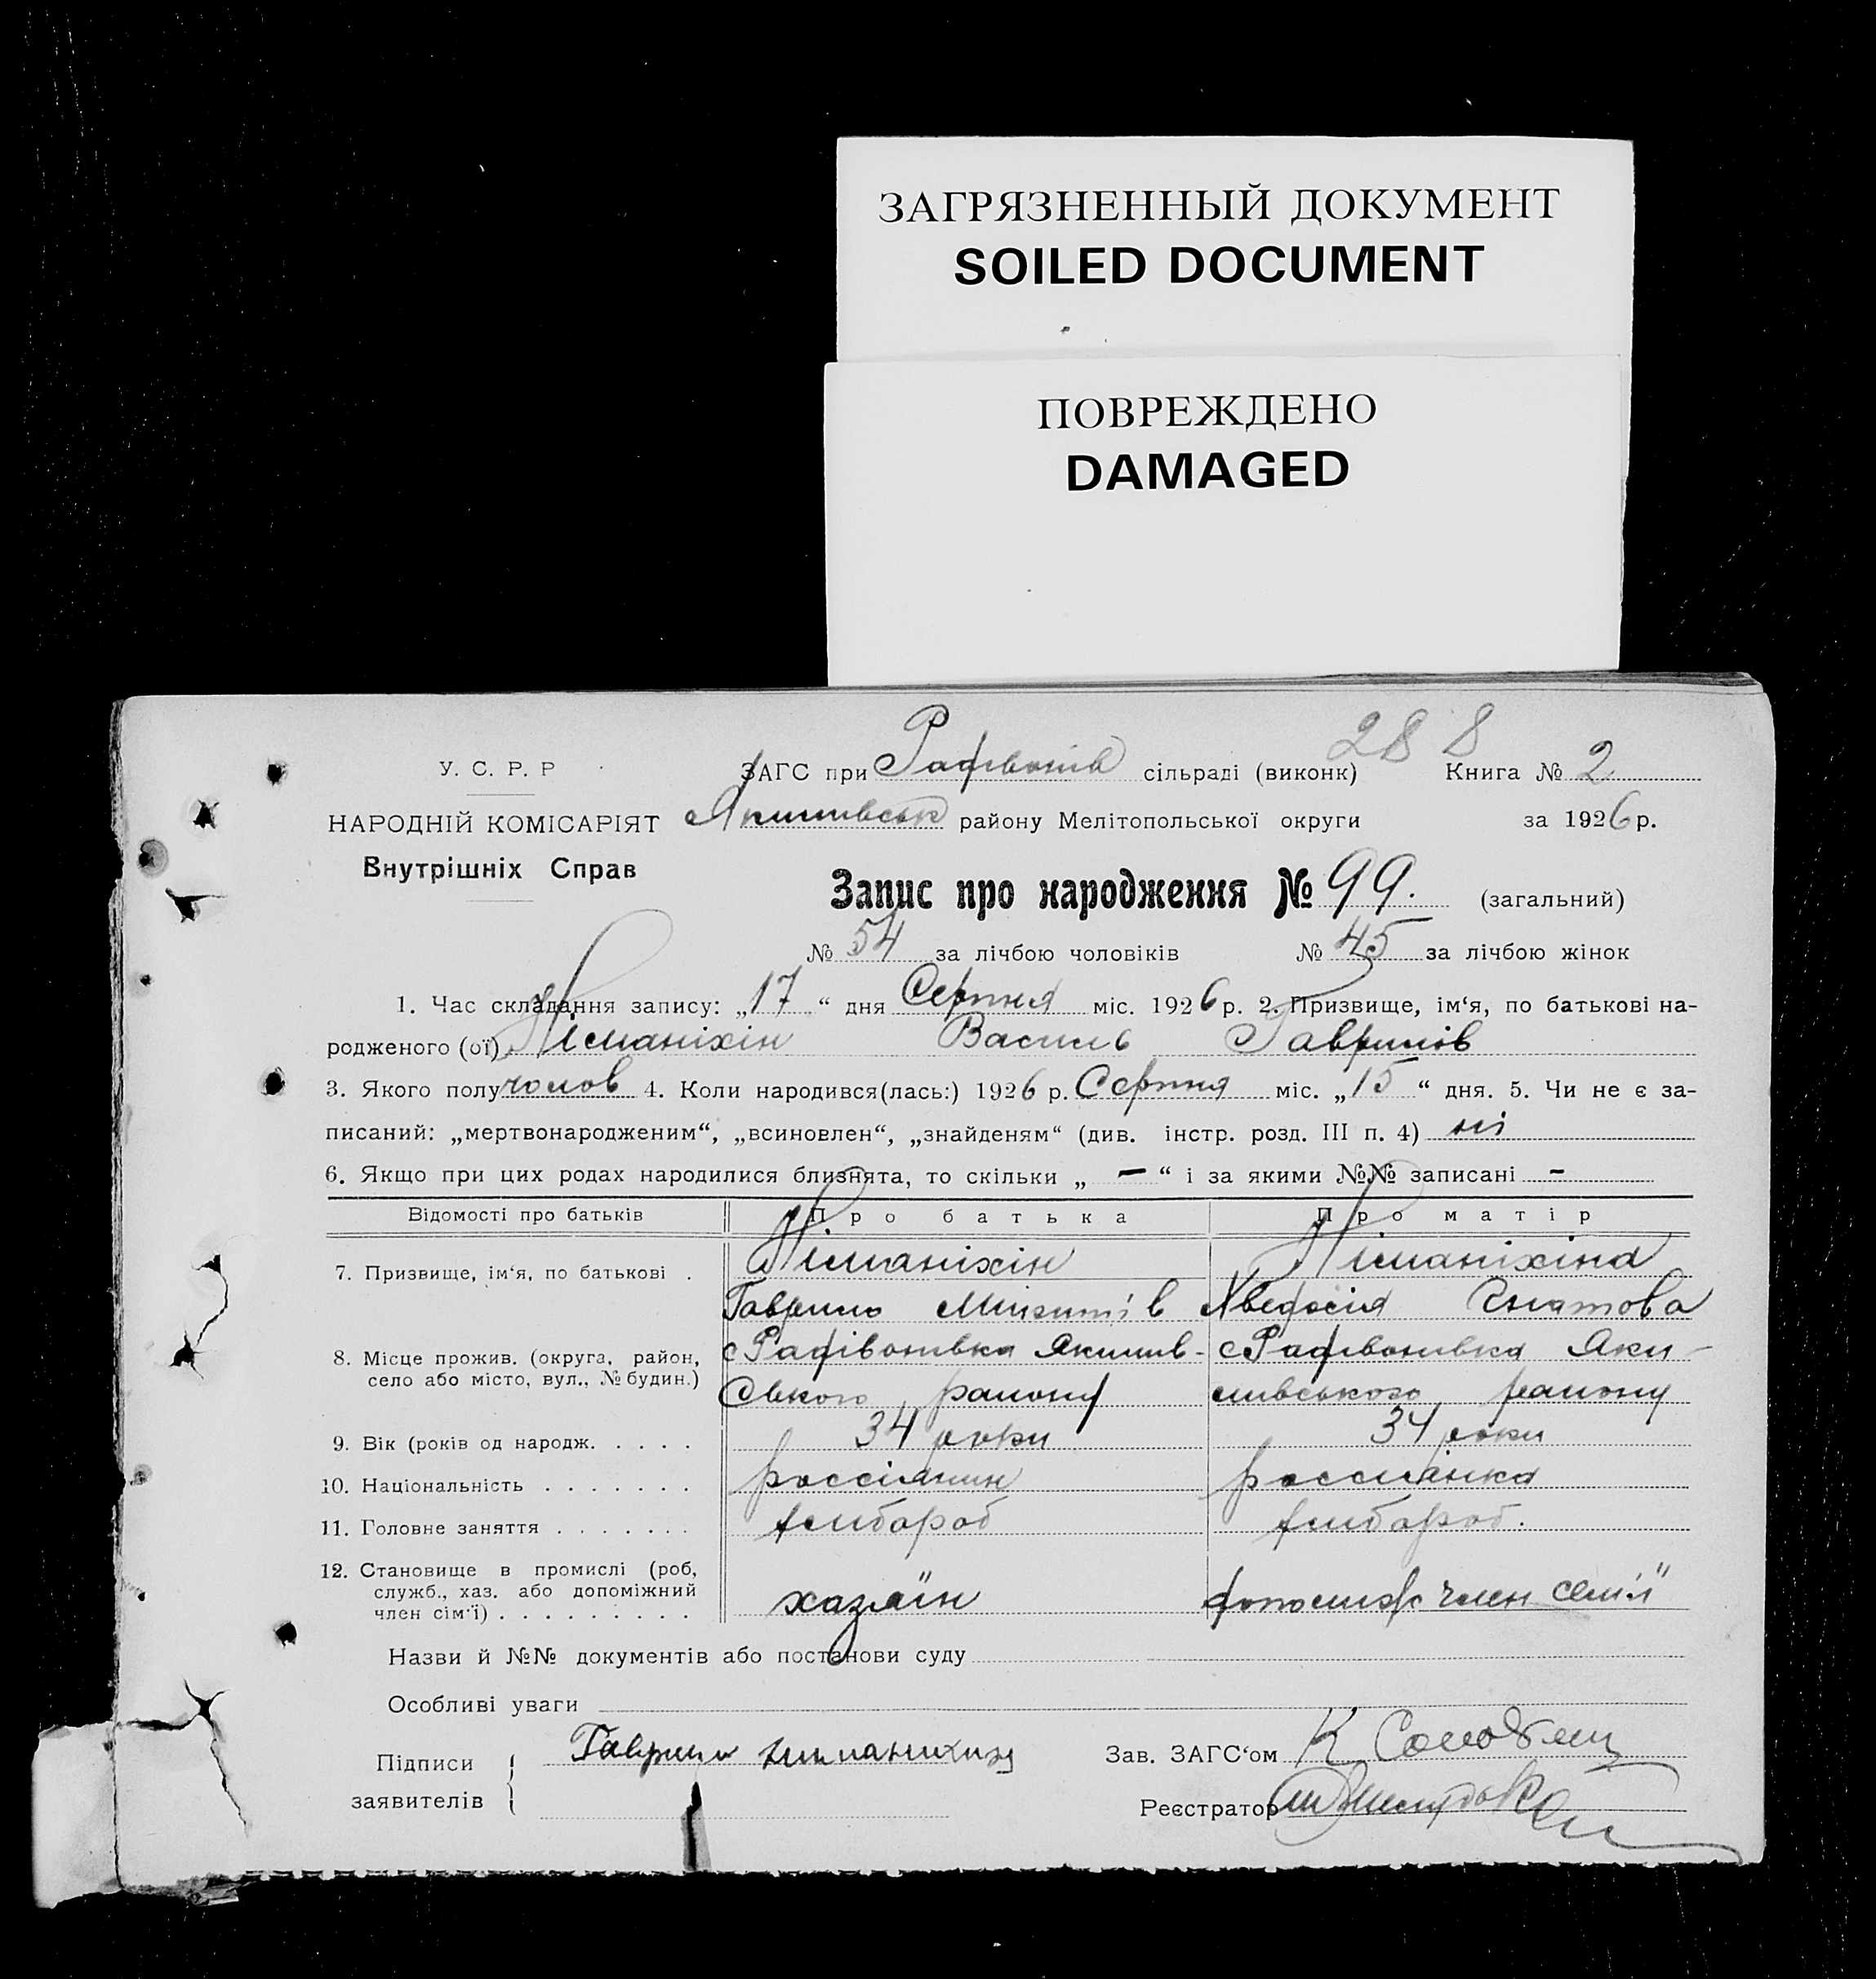 ЗАГРЯЗНЕННЫЙ ДОКУМЕНТ
SOILED DOCUMENT
ПОВРЕЖДЕНО
DAMAGED
288
У. С. Р. Р
ЗАГС при Радивонів сільраді (виконк) Книга № 2
НАРОДНІЙ КОМІСАРІЯТ Якимівськ району Мелітопольської округи за 1926 р.
Внутрішніх Справ
Запис про народження № 99. (загальний)
№ 54 за лічбою чоловіків № 45 за лічбою жінок
1. Час складання запису: „17“ дня Серпня міс. 1926 р. 2. Призвище, ім‘я, по батькові на-
родженого (ої) Німаніхін Василь Гаврилів
3. Якого полу чолов 4. Коли народився(лась:) 1926 р. Серпня міс. „15“ дня. 5. Чи не є за-
писаний: „мертвонародженим“, „всиновлен“, „знайденям“ (див. інстр. розд. III п. 4) ні
6. Якщо при цих родах народилися близнята, то скільки „ — “ і за якими №№ записані -
Відомості про батьків Про батька Про матір
7. Призвище, ім‘я, по батькові . Німаніхін Німаніхіна
Гаврило Хведосія Гнатова
8. Місце прожив. (округа, район, с Радівонивка Якимив- с Радивонивка Яки-
село або місто, вул., № будин.) ського району мивського району
9. Вік (років од народж. . . . . 34 роки 34 роки
10. Національність . . . . . . . россіянин россиянка
11. Головне заняття . . . . . . . хлибороб хлибороб.
12. Становище в промислі (роб,
служб., хаз. або допоміжний
член сім‘ї) . . . . . . . . . хазяїн допомиж член семїї
Назви й №№ документів або постанови суду
Особливі уваги
Підписи Гаврил Зав. ЗАГС‘ом К
заявителів Реєстратор